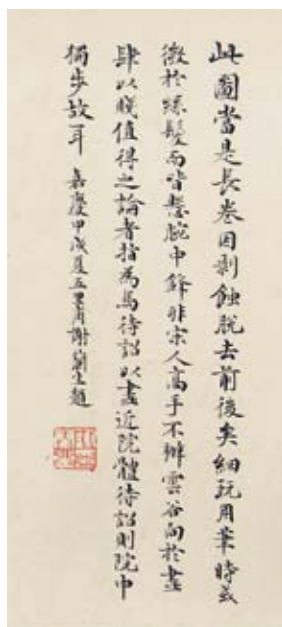 此圖當是長卷因剝蝕脫去前後矣細玩用筆時或
微於絲髮而皆懸腕中鋒非宋人高手不辦雲谷向於畫
肆以賤值得之論者指為馬待詔以畫近院體待詔則院中
獨步故耳 嘉慶甲戌夏五里甫謝蘭生題